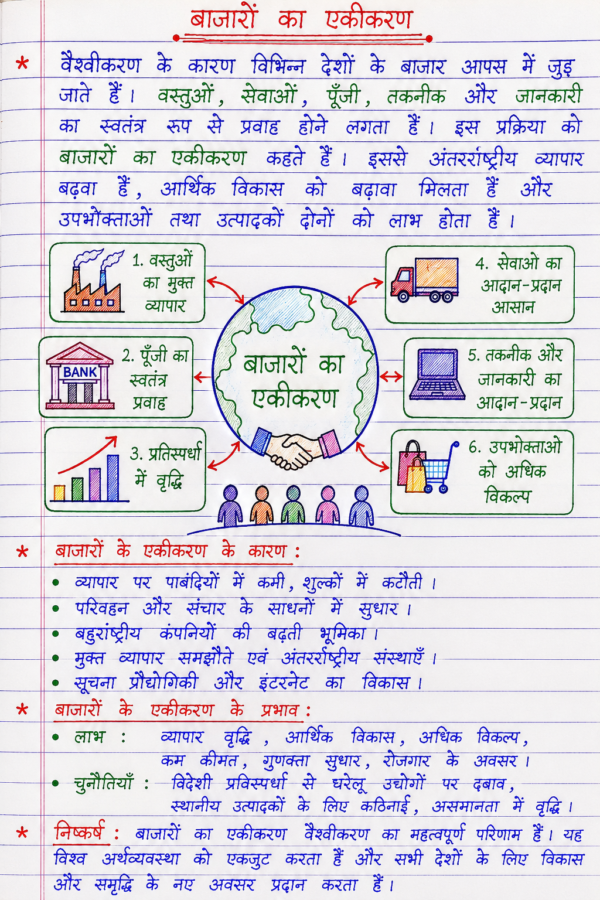 बाजारों का एकीकरण
* वैश्वीकरण के कारण विभिन्न देशों के बाजार आपस में जुड़
जाते हैं । वस्तुओं, सेवाओं, पूँजी, तकनीक और जानकारी
का स्वतंत्र रूप से प्रवाह होने लगता हैं । इस प्रक्रिया को
बाजारों का एकीकरण कहते हैं । इससे अंतरर्राष्ट्रीय व्यापार
बढ़वा हैं, आर्थिक विकास को बढ़ावा मिलता हैं और
उपभोक्ताओं तथा उत्पादकों दोनों को लाभ होता हैं ।
1. वस्तुओं
का मुक्त
व्यापार
BANK
2. पूँजी का
स्वतंत्र
प्रवाह
3. प्रतिस्पर्धा
में वृद्धि
बाजारों का
एकीकरण
4. सेवाओ का
आदान-प्रदान
आसान
5. तकनीक और
जानकारी का
आदान-प्रदान
6. उपभोक्ताओ
को अधिक
विकल्प
* बाजारों के एकीकरण के कारण :
• व्यापार पर पाबंदियों में कमी, शुल्कों में कटौती ।
• परिवहन और संचार के साधनों में सुधार ।
• बहुरांष्ट्रीय कंपनियों की बढ़ती भूमिका ।
• मुक्त व्यापार समझौते एवं अंतरर्राष्ट्रीय संस्थाएँ ।
• सूचना प्रौद्योगिकी और इंटरनेट का विकास ।
* बाजारों के एकीकरण के प्रभाव :
• लाभ : व्यापार वृद्धि, आर्थिक विकास, अधिक विकल्प,
कम कीमत, गुणक्ता सुधार, रोजगार के अवसर ।
• चुनौतियाँ : विदेशी प्रविस्पर्धा से घरेलू उद्योगों पर दबाव,
स्थानीय उत्पादकों के लिए कठिनाई, असमानता में वृद्धि ।
* निष्कर्ष : बाजारों का एकीकरण वैश्वीकरण का महत्वपूर्ण परिणाम हैं । यह
विश्व अर्थव्यवस्था को एकजुट करता हैं और सभी देशों के लिए विकास
और समृद्धि के नए अवसर प्रदान करता हैं ।